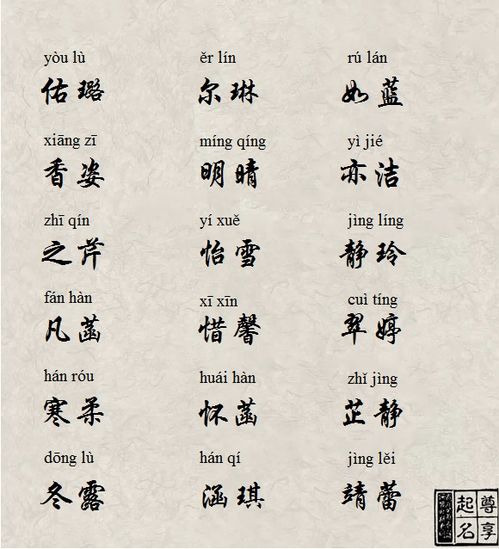 yòu lù ěr lín rú lán
佑璐 尔琳 如蓝
xiāng zī míng qíng yì jié
香姿 明晴 亦洁
zhī qín yí xuě jìng líng
之芹 怡雪 静玲
fán hàn xī xīn cuì tíng
凡菡 惜馨 翠婷
hán róu huái hàn zhǐ jìng
寒柔 怀菡 芷静
dōng lù hán qí jìng lěi
冬露 涵琪 靖蕾
尊享
起名